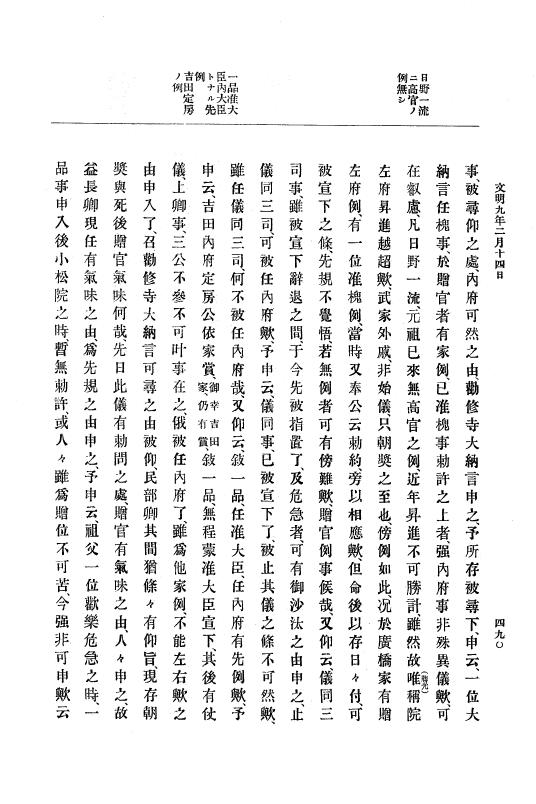 文明九年二月十四日
四九〇
日野一流
ニ高官ノ
例無シ
一品准大
臣内大臣
トナル先
例
吉田定房
ノ例
事、被尋仰之處、內府可然之由勸修寺大納言申之、予所存被尋下、申云、一位大
納言任槐事、於贈官者有家例、已准槐事勅許之上者、强內府事非殊異儀歟、可
在叡慮、凡日野一流、元祖已來無高官之例、近年昇進不可勝計、雖然故唯稱院
左府昇進越超歟、武家外戚非始儀、只朝奬之至也、傍例如此、况於廣橋家有贈
左府例、有一位准槐例、當時又奉公云勅約、旁以相應歟、但命後以存日々付、可
被宣下之條、先規不覺悟、若無例者可有傍難歟、贈官例事候哉、又仰云、儀同三
司事、雖被宣下辭退之間、于今先被指置了、及危急者、可有御沙汰之由申之、止
儀同三司、可被任內府歟、予申云、儀同事、已被宣下了、被止其儀之條不可然歟、
雖任儀同三司、何不被任內府哉、又仰云、敍一品、任准大臣、任內府有先例歟、予
申云、吉田內府定房公依家賞、御幸吉田家、仍有賞、敍一品、無程蒙准大臣宣下、其後有仗
儀、上卿事、三公不參不可叶事在之、俄被任內府了、雖爲他家例、不能左右歟之
由申入了、召勸修寺大納言可尋之由被仰、民部卿其間猶條々有仰旨、現存朝
奬與死後贈官氣味何哉、先日此儀有勅問之處、贈官有氣味之由、人々申之、故
益長卿現任有氣味之由、爲先規之由申之、予申云、祖父一位歡樂危急之時、一
品事申入後小松院之時、暫無勅許、或人々雖爲贈位不可苦、今强非可申歟云